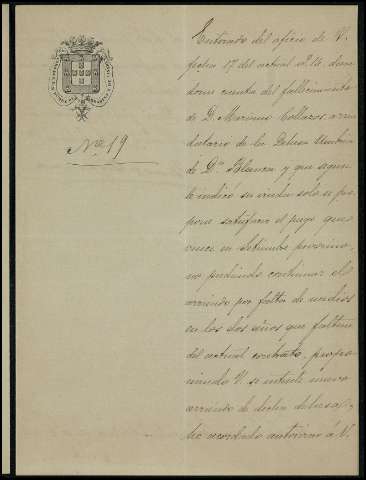 Enterado del oficio de V.
fecha 17 del actual nº 16, dan
dome cuenta del fallecimiento
de D. Mariano Collazos arren
datario de la Dehesa Umbria
de Dª Blanca y que aque
le indicó su viuda solo se pre
para satisfacer el pago que
vence en Setiembre proximo,
no pudiendo continuar el
arriendo por falta de medios
en los dos años que faltan
del actual contrato, propo
niendo V. se intente nuevo
arriendo de dicha dehesa,
he acordado autorizar á V.
Nº 19